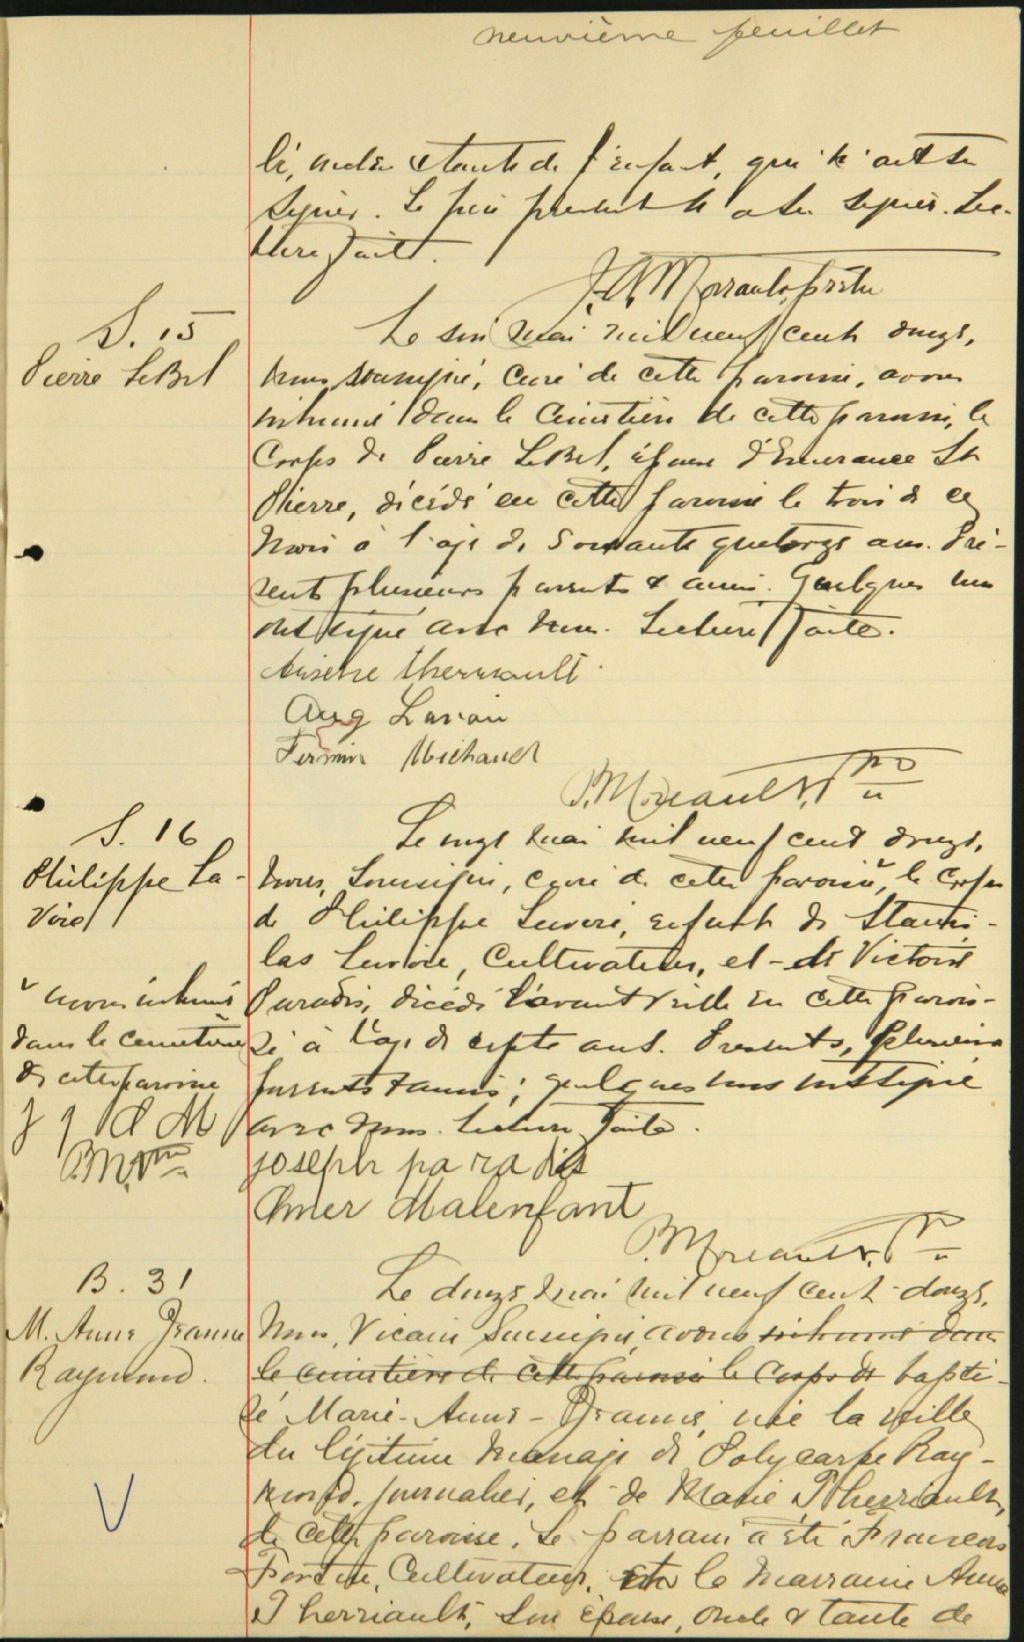 neuvième feuillet
li, oncle et tante de l'enfant, qui n'ont su
signer. Le père présent n'a su signer. Lec-
ture faite.
J. A. Morrault, prêtre
S. 15
Pierre LeBel
Le six mai mil neuf cent douze,
nous soussigné, curé de cette paroisse, avons
inhumé dans le cimetière de cette paroisse, le
corps de Pierre LeBel, époux d'Emerance St
Pierre, décédé en cette paroisse le trois de ce
mois à l'age de soixante quatorze ans. Pré-
sents plusieurs parents & amis. Quelques uns
ont signé avec nous. Lecture faite.
Arsène Therriault
Aug Lavoie
Firmin Michaud
P. Moreault, Ptre
S. 16
Philippe La-
voie
Le onze mai mil neuf cent douze,
nous, soussigné, curé de cette paroisse, ˅ le corps
de Philippe Lavoie, enfant de Stanis-
las Lavoie, cultivateur, et de Victoire
Paradis, décédé l'avant veille en cette parois-
se à l'age de septe ans. Presents, plusieurs
parents & amis; quelques uns ont signé
avec nous. Lecture faite.
˅ avons inhumé
dans le cemetière
de cette paroisse
J P O M
P.M. Ptre
joseph paradis
Omer Malenfant
P. Moreault, Ptr
B. 31
M. Anne Jeanne
Raymond.
Le douze mai mil neuf cent douze,
Nous, Vicaire soussigné, avons inhumé dans
le cimetière de cette paroisse le corps de bapti-
sé Marie-Anne-Jeanne, née la veille
du légitime mariage de Polycarpe Ray-
mond, journalier, et de Marie Therriault,
de cette paroisse. Le parrain a été François
Fortin, Cultivateur, et la marraine Anna
Therriault, son épouse, oncle & tante de